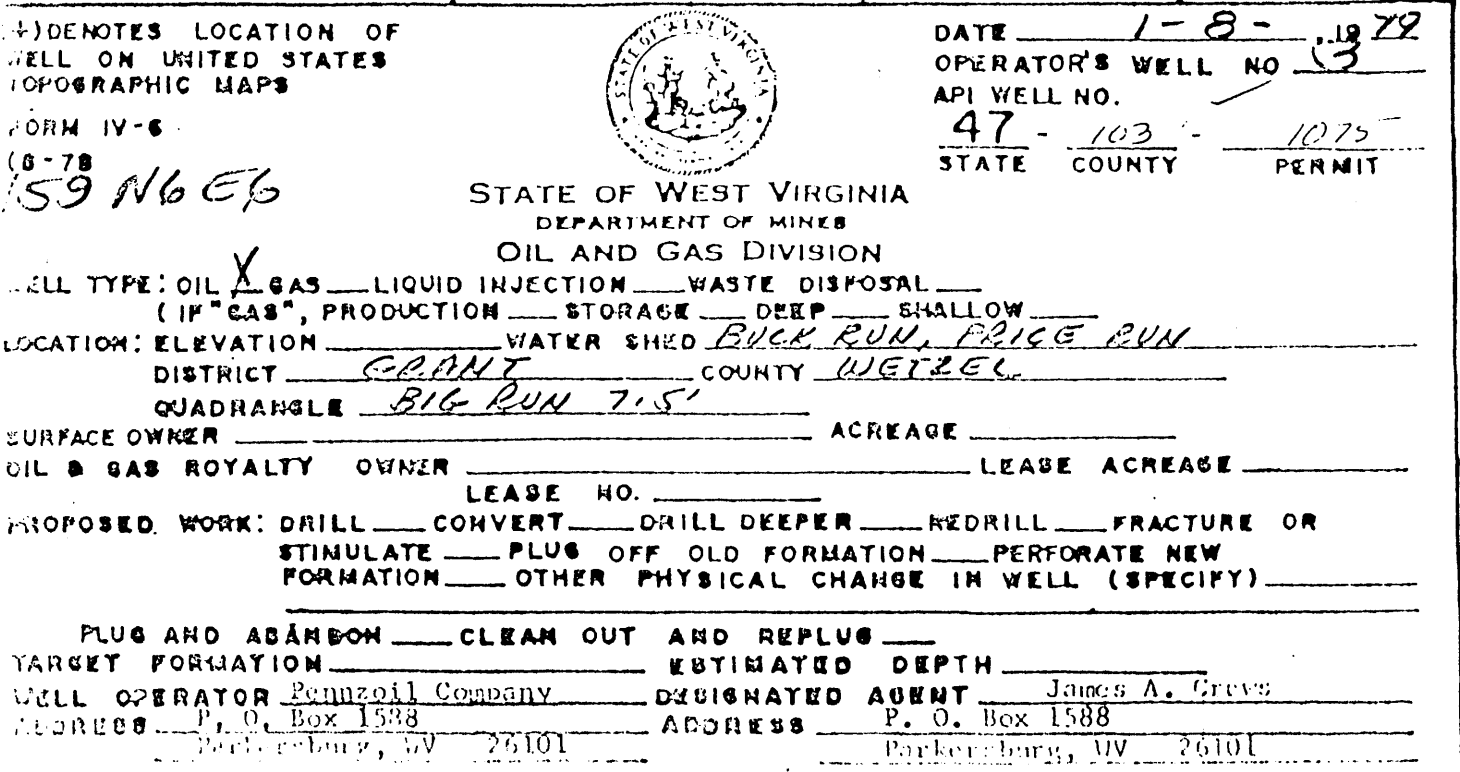 (+) DENOTES LOCATION OF
WELL ON UNITED STATES
TOPOGRAPHIC MAPS
FORM IV-6
(8-78
159 N6 E6
STATE OF WEST VIRGINIA
DATE 1-8-, 1979
OPERATOR'S WELL NO
API WELL NO.
47 - 103 - 1075
STATE COUNTY PERMIT
STATE OF WEST VIRGINIA
DEPARTMENT OF MINES
OIL AND GAS DIVISION
WELL TYPE: OIL X GAS ___ LIQUID INJECTION ___ WASTE DISPOSAL ___
(IF "GAS", PRODUCTION ___ STORAGE ___ DEEP ___ SHALLOW ___
LOCATION: ELEVATION ___ WATER SHED BUCK RUN, PRICE RUN
DISTRICT GRANT COUNTY WETZEL
QUADRANGLE BIG RUN 7.5'
SURFACE OWNER ___ ACREAGE ___
OIL & GAS ROYALTY OWNER ___ LEASE ACREAGE ___
LEASE NO. ___
PROPOSED WORK: DRILL ___ CONVERT ___ DRILL DEEPER ___ REDRILL ___ FRACTURE OR
STIMULATE ___ PLUG OFF OLD FORMATION ___ PERFORATE NEW
FORMATION ___ OTHER PHYSICAL CHANGE IN WELL (SPECIFY) ___
PLUG AND ABANDON ___ CLEAN OUT AND REPLUG ___
TARGET FORMATION ___ ESTIMATED DEPTH ___
WELL OPERATOR Pennzoil Company DESIGNATED AGENT James A. Crews
ADDRESS P. O. Box 1588 ADDRESS P. O. Box 1588
Parkersburg, WV 26101 Parkersburg, WV 26101